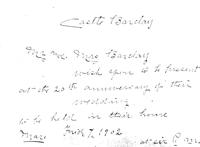 Castle Barclay
Mr. and Mrs. Barclay
wish you to be present
at the 20th anniversary of their
wedding
to be held in their home
7, 1902
at six P.M.